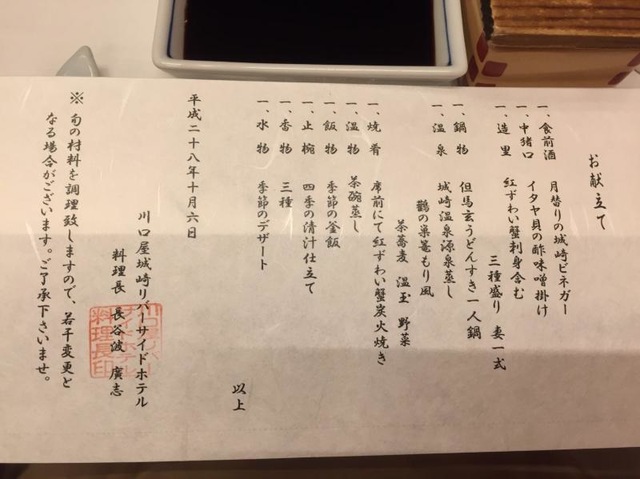 お献立て
一、食前酒　月替りの城崎ビネガー
一、中猪口　イタヤ貝の酢味噌掛け
一、造里　紅ずわい蟹刺身含む
三種盛り　妻一式
一、鍋物　但馬玄うどんすき一人鍋
一、温泉　城崎温泉源泉蒸し
鸛の巣篭もり風
茶蕎麦　温玉　野菜
一、焼肴　席前にて紅ずわい蟹炭火焼き
一、温物　茶碗蒸し
一、飯物　季節の釜飯
一、止椀　四季の清汁仕立て
一、香物　三種
一、水物　季節のデザート
以上
平成二十八年十月六日
川口屋城崎リバーサイドホテル
料理長　長谷波　廣志
※　旬の材料を調理致しますので、若干変更と
なる場合がございます。ご了承下さいませ。